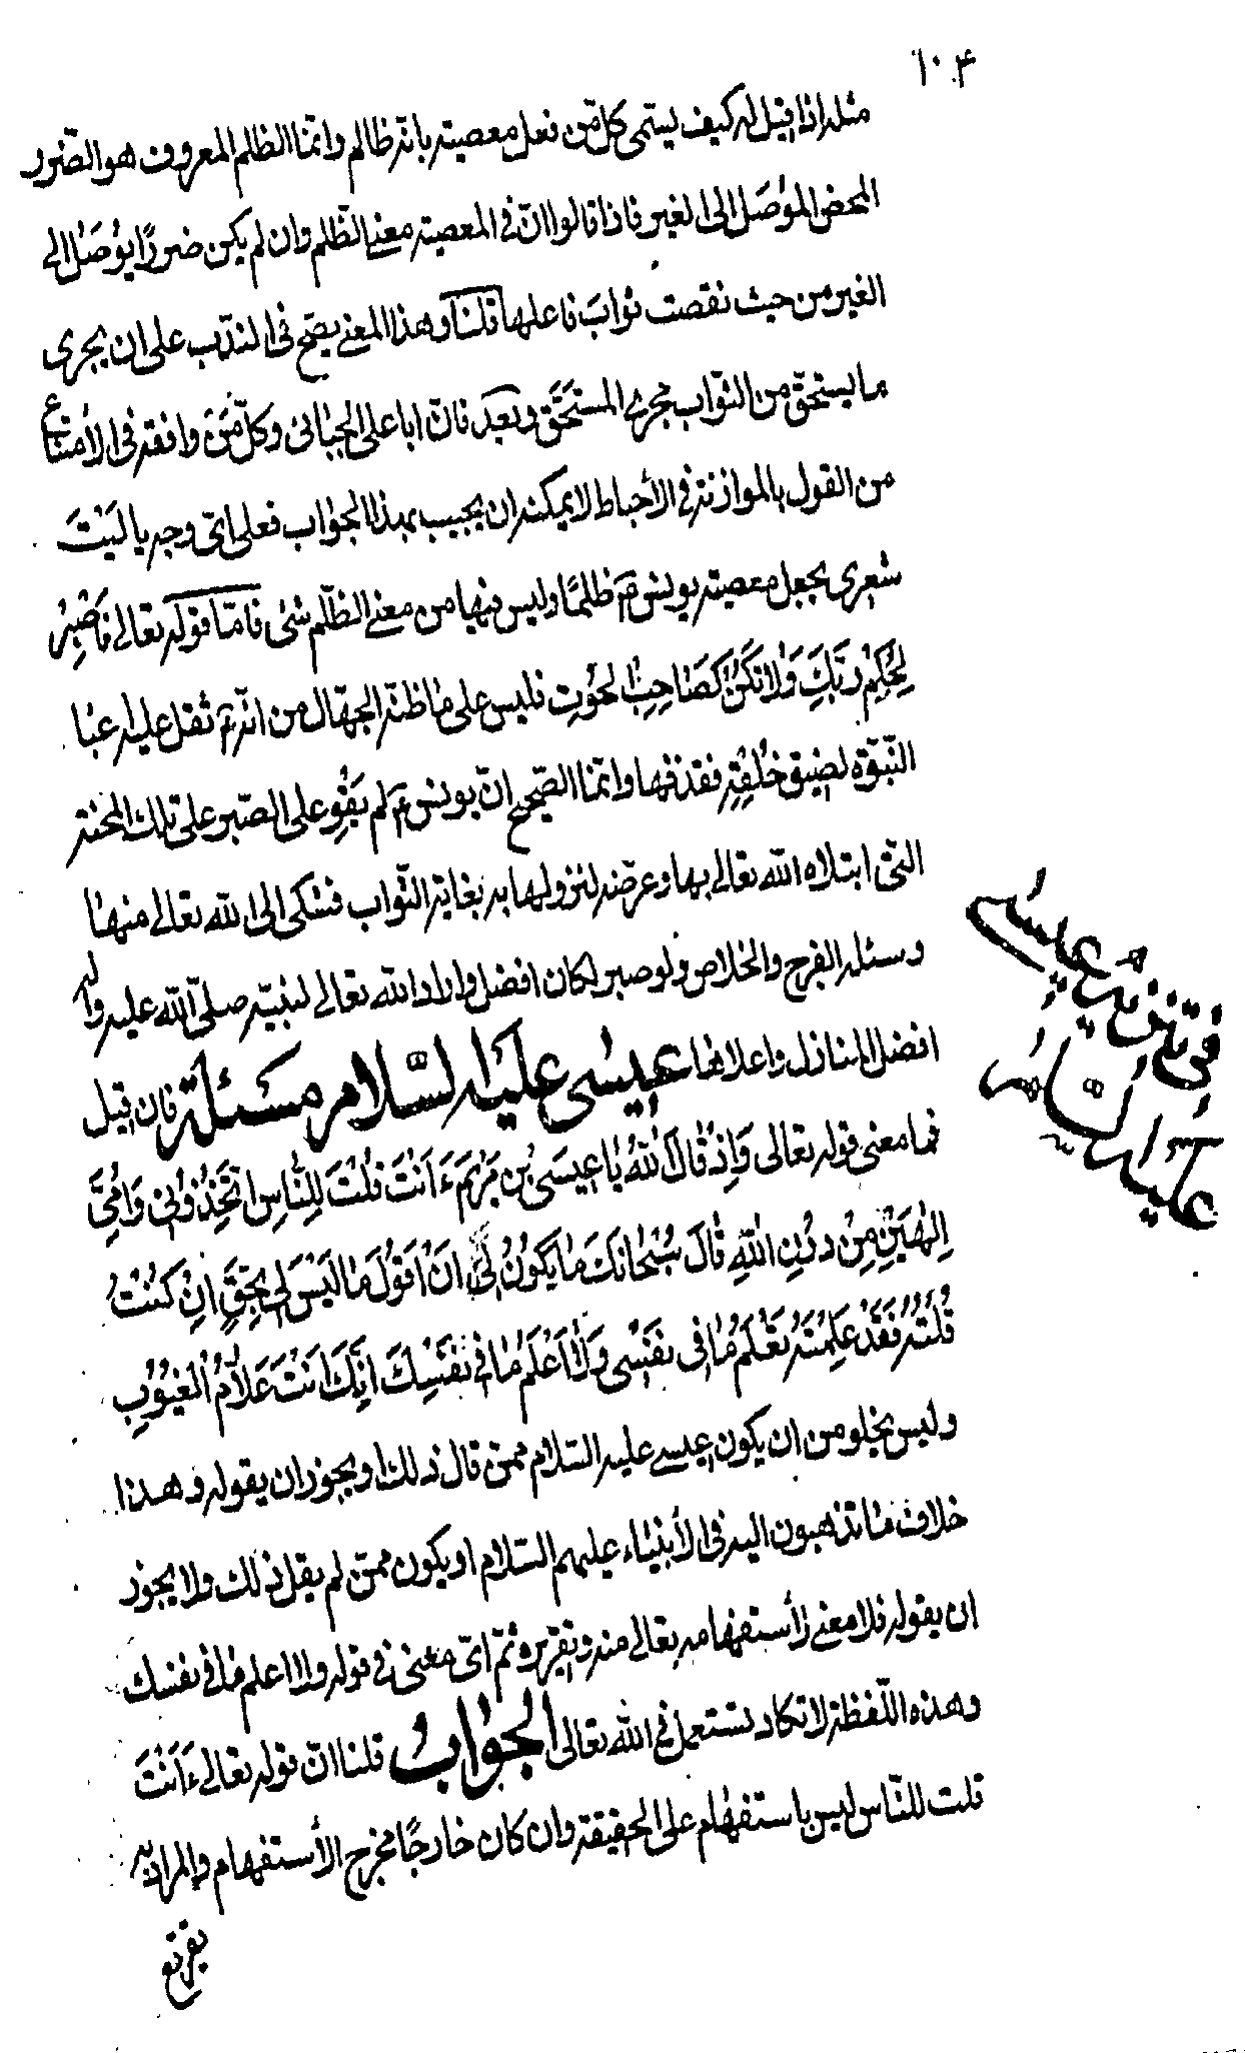 ١٠٤
مثله اذا قيل له كيف يسمّى كلّ من فعل معصية بانّه ظالم وانّما الظلم المعروف هو الضّرر
المحض الموصَل الى الغير فاذا قالوا انّ في المعصية معنى الظّلم وان لم يكن ضررًا يوصَل الى
الغير من حيث نقصت ثوابَ فاعلها قلنا وهذا المعنى يصحّ فى النّدب على ان يجرى
ما يستحقّ من الثّواب مجرى المستحَقّ وبعد فانّ ابا على الجبّائى وكلّ مَن وافقه فى الأمتناع
من القول بالموازنة في الأحباط لا يمكنه ان يجيب بهذا الجواب فعلى اىّ وجه يا ليت
شعرى يجعل معصية يونس ع ظلمًا وليس فيها من معنى الظّلم شئ فامّا قوله تعالى فَاصْبِرْ
لِحُكْمِ رَبِّكَ وَلٰا تَكُنْ كَصٰاحِبِ الحُوْتِ فليس على ما ظنّه الجهّال من انّه ع ثقل عليه عبا
النّبوّة لضيق خُلُقِهِ فقذفها وانّما الصّحيح انّ يونس ع لم يَقْوِ على الصّبر على تلك المحنة
الّتى ابتلاه الله تعالى بها وعرّضه لنزولها به بغاية الثّواب فشكى الى الله تعالى منها
وسئله الفرج والخلاص ولو صبر لكان افضل واراد الله تعالى لنبيّه صلّى الله عليه واله
افضل المنازل واعلاها عيسى عليه السّلام مسئلة فان قيل
فما معنى قوله تعالى وَاِذْ قٰالَ اللهُ يٰا عِيسَى بْنَ مَرْيَمَ ءَاَنْتَ قُلْتَ لِلنّٰاسِ اتَّخِذُونِى وَاُمِّىَ
اِلٰهَيْنِ مِنْ دُونِ اللهِ قٰالَ سُبْحٰانَكَ مٰا يَكُونُ لِى اَنْ اَقُولَ مٰا لَيْسَ لِى بِحَقٍّ اِنْ كُنْتُ
قُلْتُهُ فَقَدْ عَلِمْتَهُ تَعْلَمُ مٰا فِى نَفْسِى وَلٰا اَعْلَمُ مٰا فِى نَفْسِكَ اِنَّكَ اَنْتَ عَلّٰامُ الْغُيُوبِ
وليس يخلو من ان يكون عيسى عليه السّلام ممّن قال ذلك او يجوز ان يقوله وهذا
خلاف مٰا تذهبون اليه فى الأنبيٰاء عليهم السّلام او يكون ممّن لم يقل ذلك ولا يجوز
ان يقوله فلا معنى لأستفهامه تعالى منه وتقريره ثمّ اىّ معنى فى قوله ولا اعلم مٰا فى نفسك
وهذه اللّفظة لا تكاد تستعمل فى الله تعالى الجوٰابُ قلنا انّ قوله تعالى ءَاَنْتَ
قلت للنّاس ليس باستفهٰام على الحقيقة وان كان خارجًا مخرج الأستفهام والمراد به
تقريع
فى تنزيه عيسى
عليه السّلام